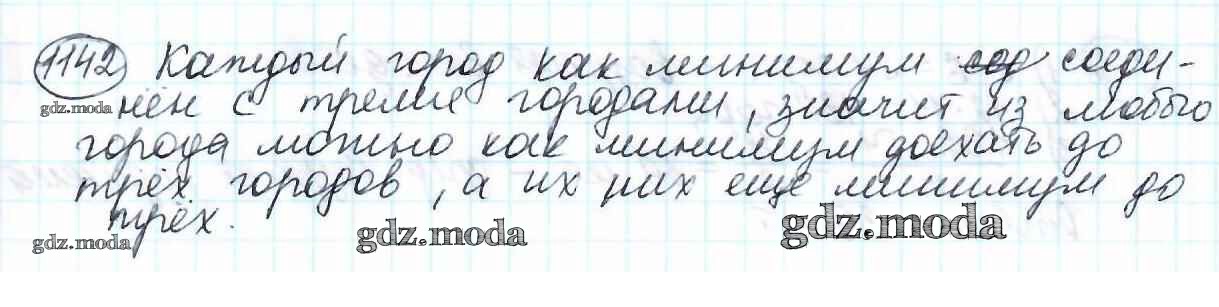 1142 Каждый город как минимум сод соеди-
gdz.moda нён с тремя городами, значит из любого
города можно как минимум доехать до
трёх городов, а их них ещё минимум до
трёх.
gdz.moda gdz.moda gdz.moda